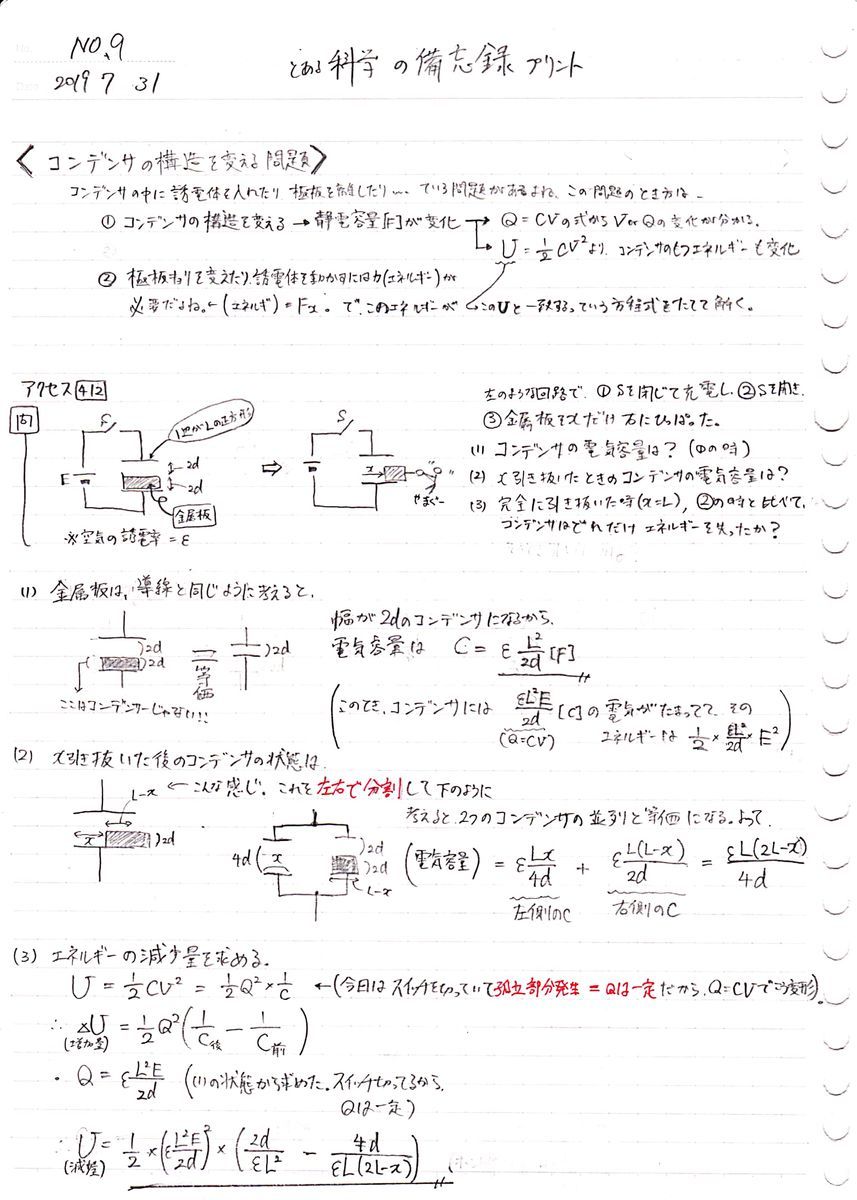 No.
NO.9
Date
2019 7 31
とある科学の備忘録プリント
〈コンデンサの構造を変える問題〉
コンデンサの中に誘電体を入れたり極板を離したり…っている問題があるよね。この問題のとき方は→
① コンデンサの構造を変える→静電容量[F]が変化→Q=CVの式からVorQの変化が分かる。
→U=1/2CV²より、コンデンサのもつエネルギーも変化
② 極板キョリを変えたり、誘電体を動かすには力(エネルギー)が
必要だよね。←(エネルギ)=Fx。で、このエネルギーが このUと一致するっていう方程式をたてて解く。
アクセス 412
問
S
1辺がLの正方形
E
2d
2d
金属板
※空気の誘電率=ε
⇨
S
x
やまぐー
左のような回路で、①Sを閉じて充電し、②Sを開き、
③金属板をxだけ右にひっぱった。
(1) コンデンサの電気容量は?(①の時)
(2) x引き抜いたときのコンデンサの電気容量は?
(3) 完全に引き抜いた時(x=L)、②の時と比べて、
コンデンサはどれだけエネルギーを失ったか?
(1) 金属板は、導線と同じように考えると、
)2d
)2d
=
等価
)2d
ここはコンデンサーじゃない!!
幅が2dのコンデンサになるから、
電気容量は C=ε L²/2d [F]
(このとき、コンデンサには εL²E/2d [C]の電気がたまってて、その
(Q=CV) エネルギーは 1/2×εL²/2d×E²)
(2) x引き抜いた後のコンデンサの状態は、
L-x ←こんな感じ。これを左右で分割して下のように
x )2d
考えると、2つのコンデンサの並列と等価になる。よって、
4d( x )2d )2d L-x
(電気容量) = ε Lx/4d + εL(L-x)/2d = εL(2L-x)/4d
左側のC 右側のC
(3) エネルギーの減少量を求める。
U=1/2CV²=1/2Q²×1/C ←(今日はスイッチを切っていて孤立部分発生=Qは一定だから、Q=CVでこう変形)。
∴ΔU=1/2Q²(1/C後 - 1/C前)
(増加量)
・Q=ε L²E/2d ((1)の状態から求めた。スイッチ切ってるから、
Qは一定)
∴U=1/2×(ε L²E/2d)²×(2d/εL² - 4d/εL(2L-x))
(減少量)